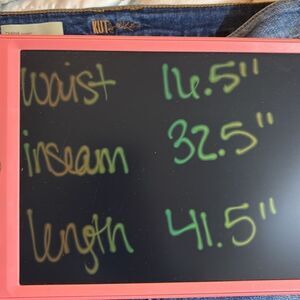 KUT
waist 16.5"
inseam 32.5"
length 41.5"